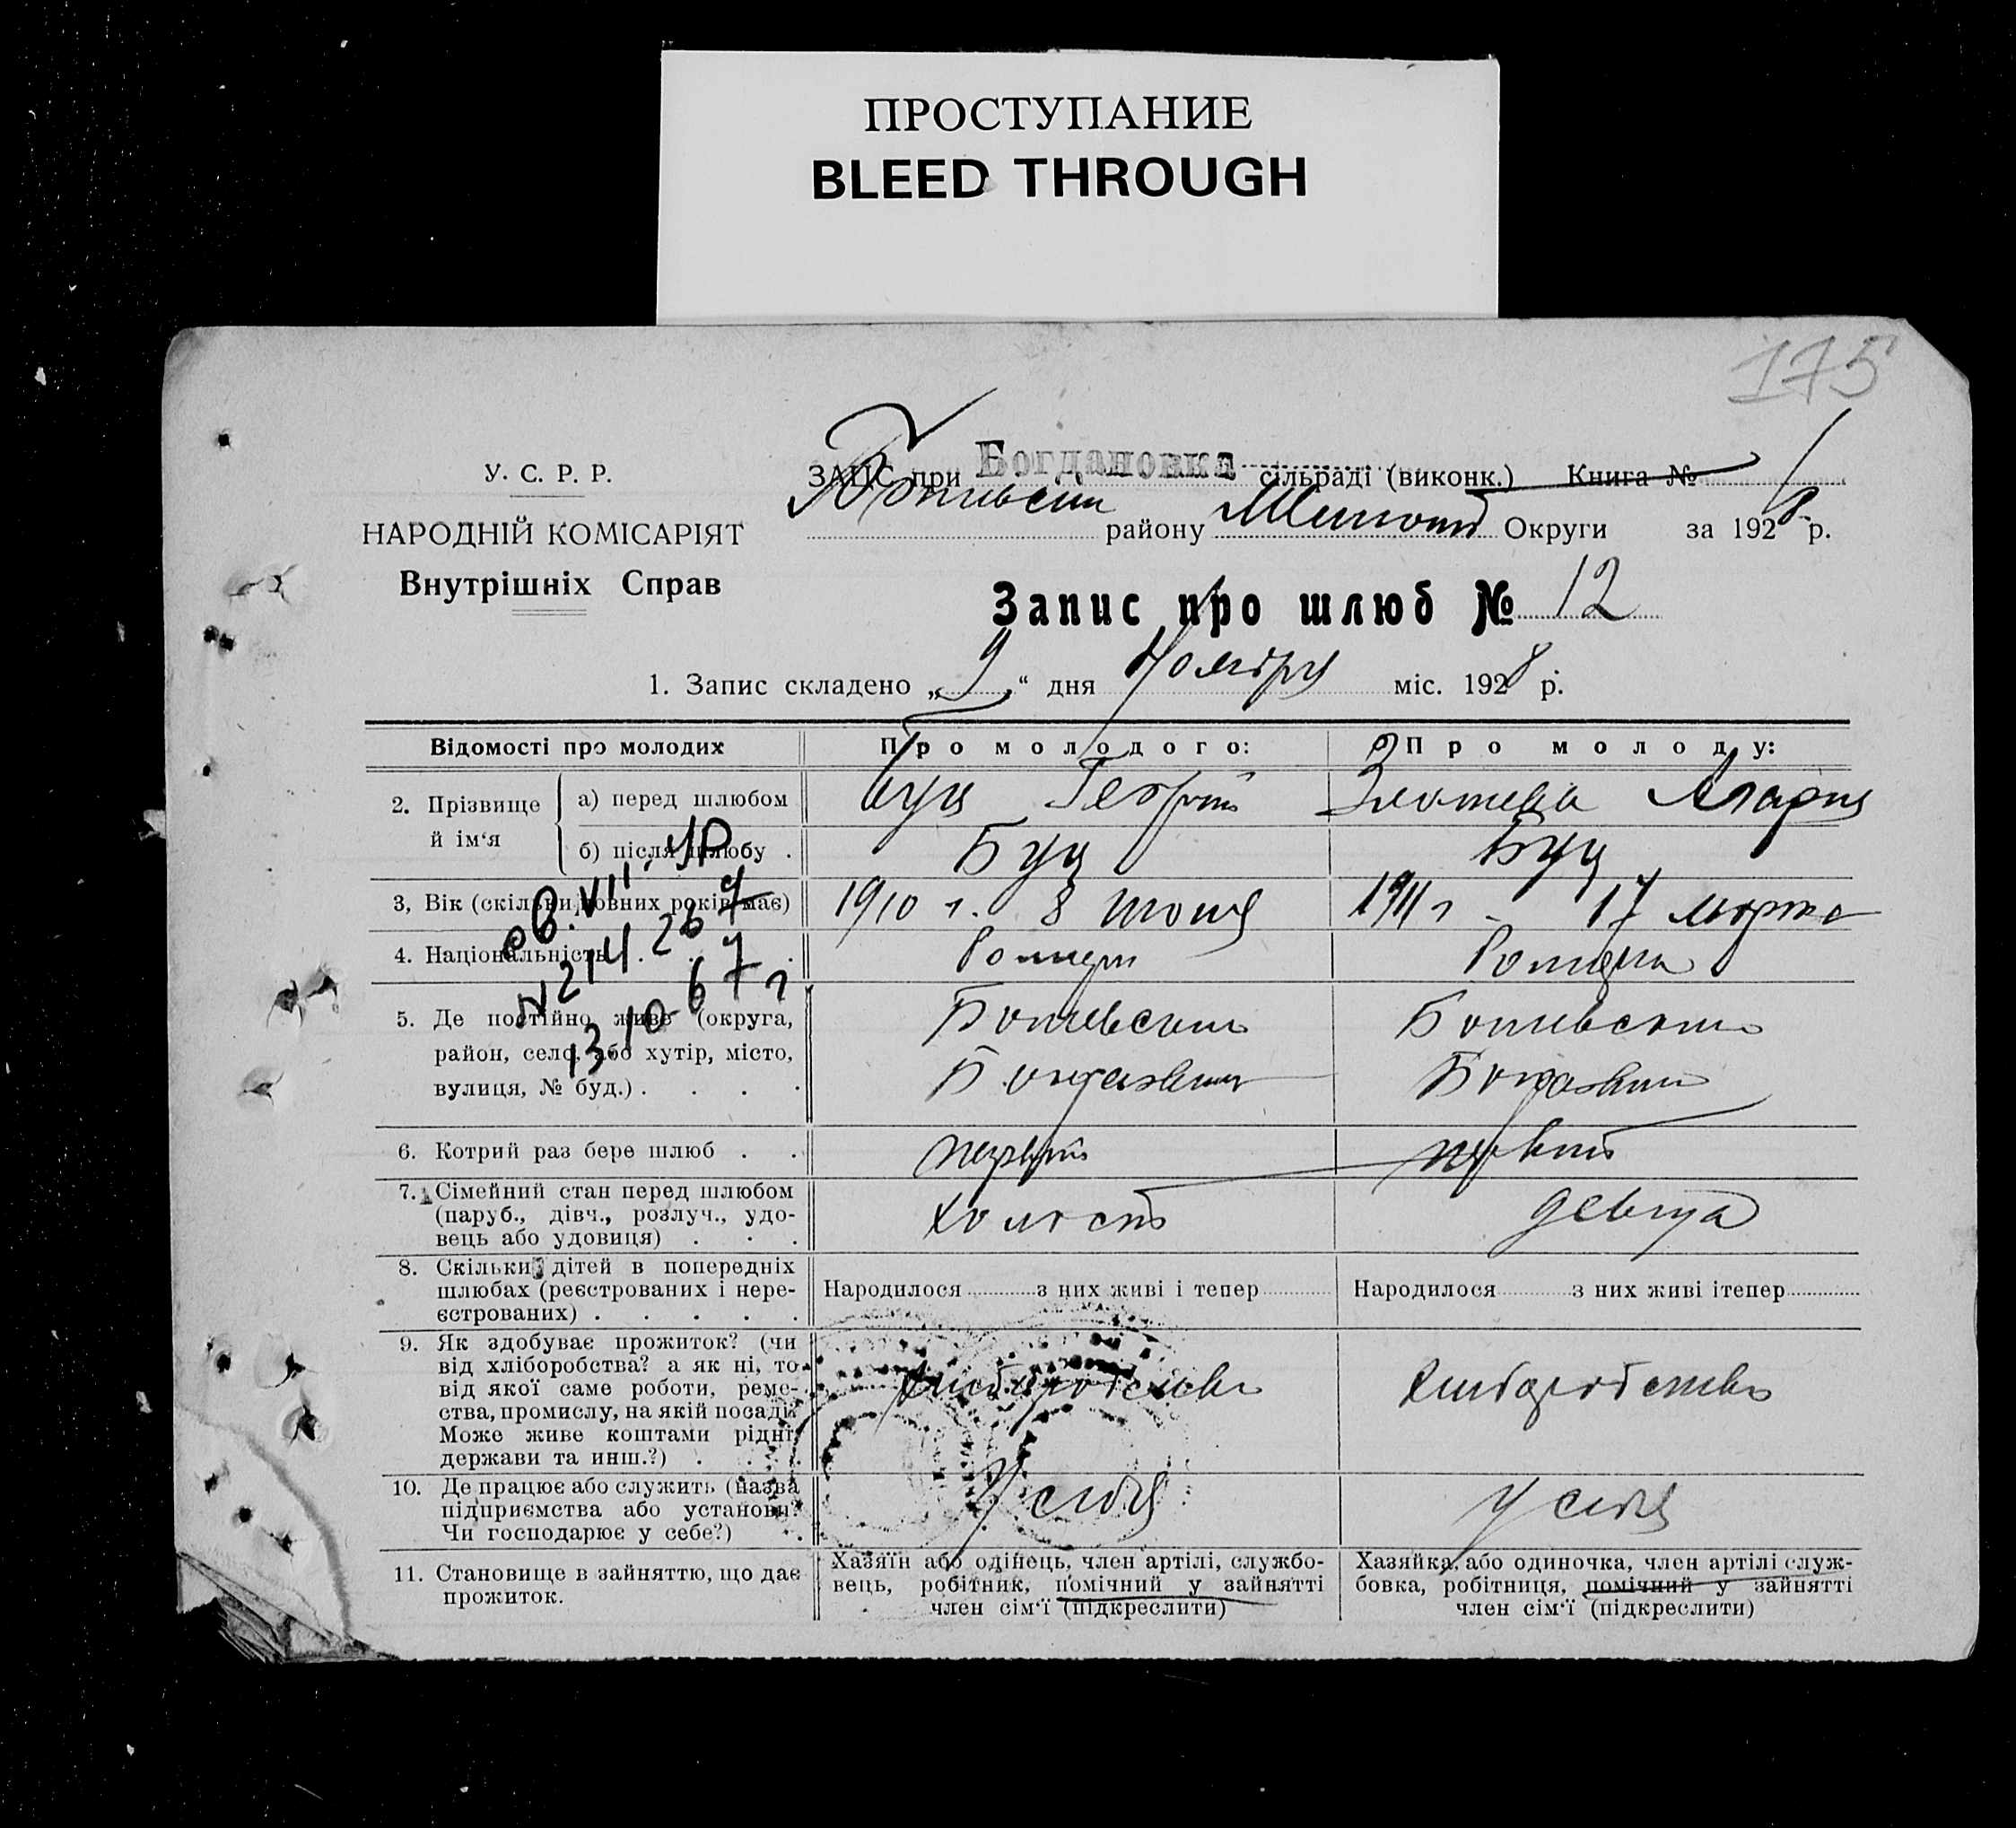 ПРОСТУПАНИЕ
BLEED THROUGH
175
У. С. Р. Р.
НАРОДНІЙ КОМІСАРІЯТ
Внутрішніх Справ
ЗАГС при Богдановка сільраді (виконк.) Книга №
району Округи за 1928 р.
Запис про шлюб № 12
1. Запис складено „9“ дня Ноября міс. 1928 р.
Відомості про молодих
Про молодого:
Про молоду:
2. Прізвище й ім‘я
а) перед шлюбом
Буц Георгий
Мария
б) після шлюбу .
Буц
Буц
3, Вік (скільки повних років має)
1910 г. 8 июня
1911 г - 17 марта
4. Національність . . . .
5. Де постійно живе (округа,
район, село, або хутір, місто,
вулиця, № буд.) . . . .
Ботиевский
Ботиевский
6. Котрий раз бере шлюб . .
первый
первый
7. Сімейний стан перед шлюбом
(паруб., дівч., розлуч., удо-
вець або удовиця) . . .
холост
девица
8. Скільки дітей в попередніх
шлюбах (реєстрованих і нере-
єстрованих) . . . . .
Народилося з них живі і тепер
Народилося з них живі ітепер
9. Як здобуває прожиток? (чи
від хліборобства? а як ні, то
від якої саме роботи, реме-
ства, промислу, на якій посаді?
Може живе коштами рідні,
держави та инш.?) . . .
хлеборобство
хлеборобство
10. Де працює або служить (назва
підприємства або установи?
Чи господарює у себе?) .
У себя
у себя
11. Становище в зайняттю, що дає
прожиток.
Хазяїн або одінець, член артілі, службо-
вець, робітник, помічний у зайнятті
член сім‘ї (підкреслити)
Хазяйка, або одиночка, член артілі служ-
бовка, робітниця, помічний у зайнятті
член сім‘ї (підкреслити)